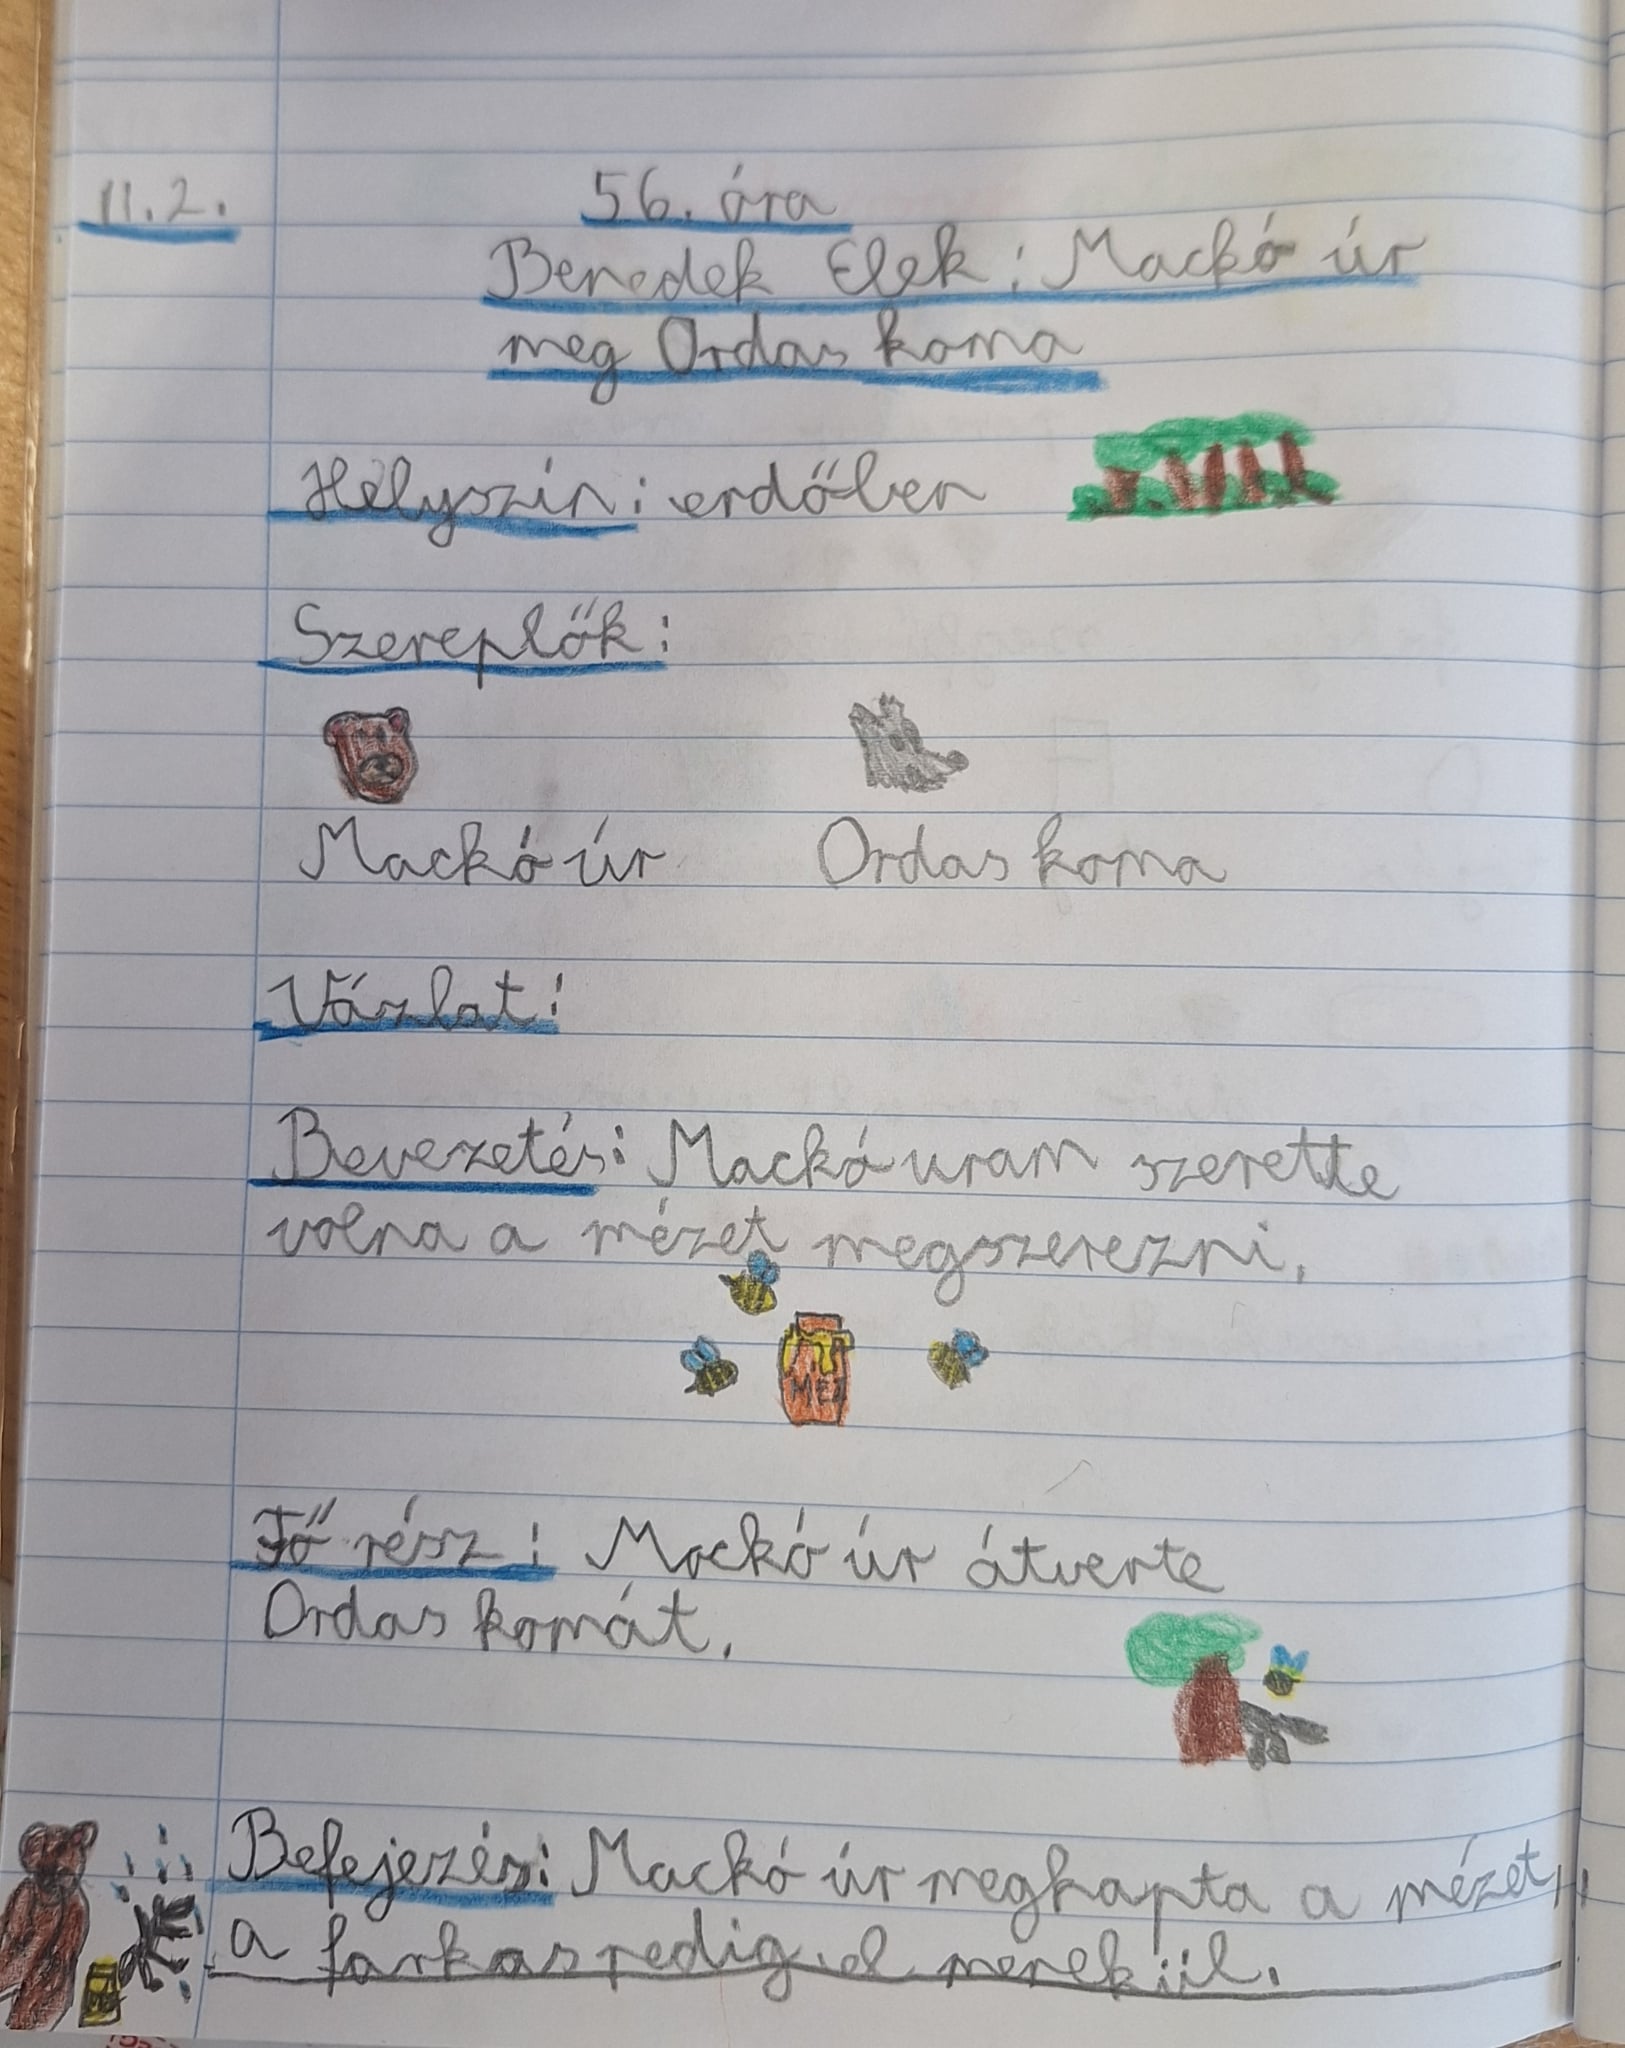 11.2.
56. óra
Benedek Elek: Mackó úr
meg Ordas koma
Helyszín: erdőben
Szereplők:
Mackó úr Ordas koma
Vázlat:
Bevezetés: Mackó uram szerette
volna a mézet megszerezni.
MÉZ
Fő rész: Mackó úr átverte
Ordas komát.
Befejezés: Mackó úr megkapta a mézet,
a farkas redig el menekül.